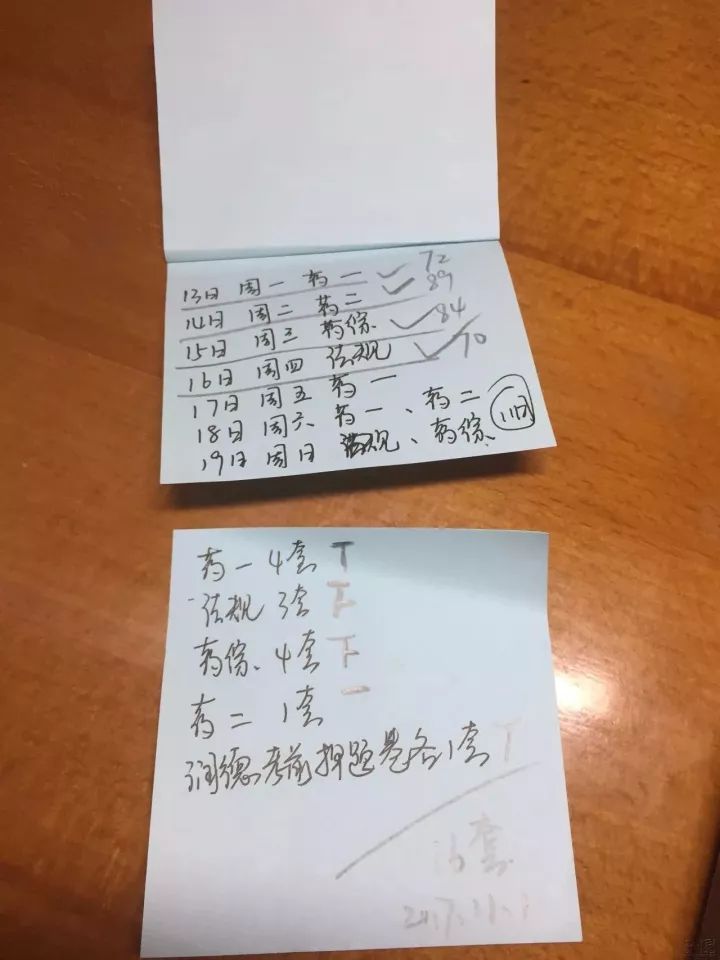 13日 周一 药一 ✓ 72
14日 周二 药二 ✓ 89
15日 周三 药综 ✓ 84
16日 周四 法规 ✓ 70
17日 周五 药一
18日 周六 药一、药二
19日 周日 法规、药综
药一 4套 T
法规 3套 下
药综、4套 下
药二 1套 一
润德考前押题是各1套 T
套